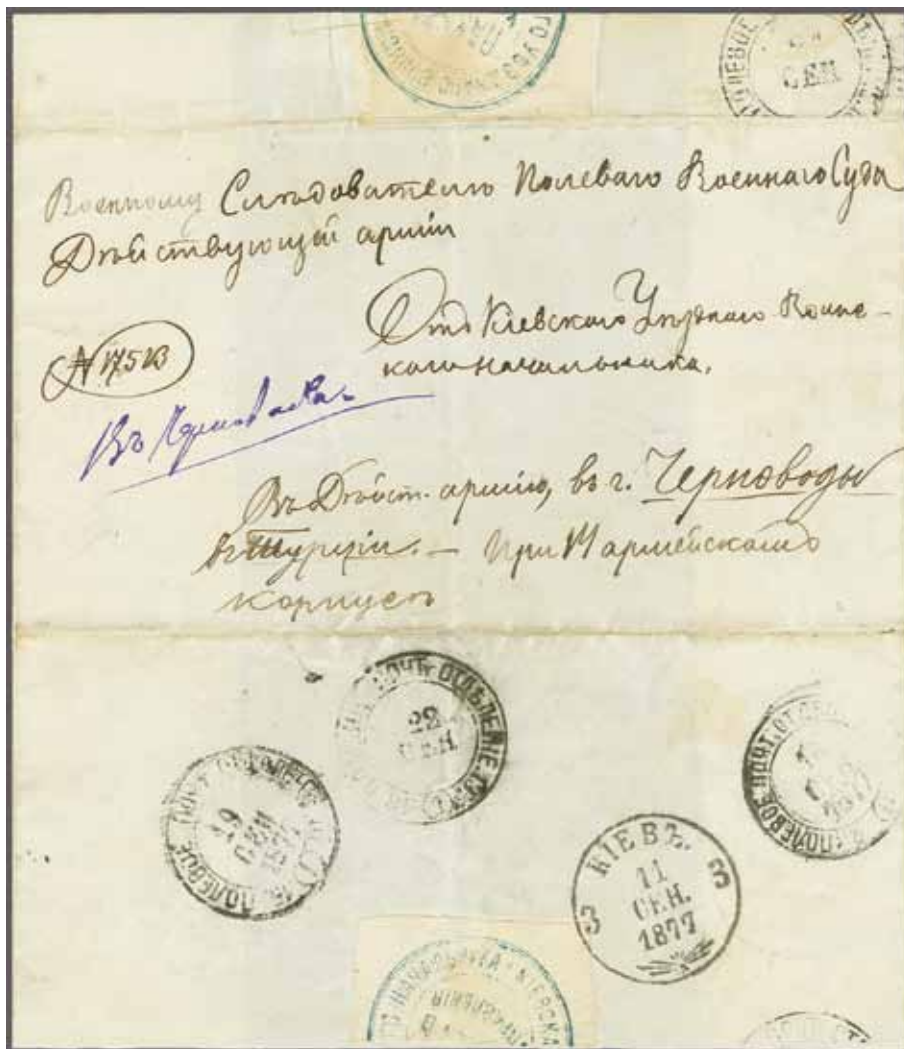 ПОЛЕВОЕ
СЕН
Военному Слѣдователю Полеваго Военнаго Суда
Дѣйствующей арміи
Отъ Кіевскаго Уѣзднаго Воинс-
каго Начальника.
№ 17513
Въ
Въ Дѣйст. армію, въ г. Черноводы
въ Турціи. — При армейскомъ
корпусѣ
ПОЧТ. ОТДѢЛЕНІЕ
22
СЕН
ПОЛЕВОЕ ПОЧТ.
19
СЕН
1877
ПОЛЕВОЕ ПОЧТ. ОТДѢ
КІЕВЪ.
3 3
11
СЕН.
1877
НАЧАЛЬНИКА
УПРАВЛЕНІЯ